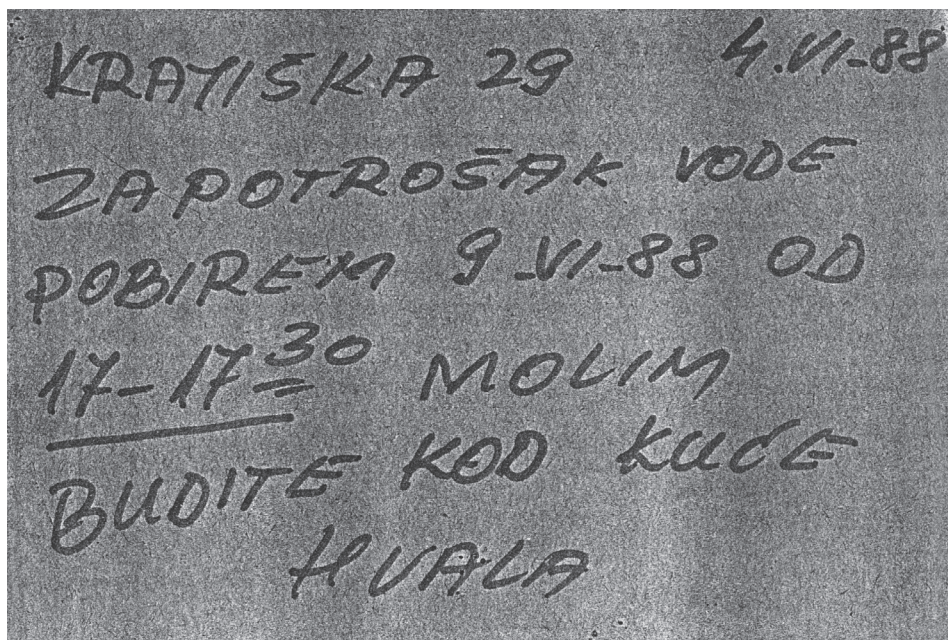 KRAJIŠKA 29 4.VI-88
ZA POTROŠAK VODE
POBIREM 9-VI-88 OD
17-17 30 MOLIM
BUDITE KOD KUĆE
HVALA